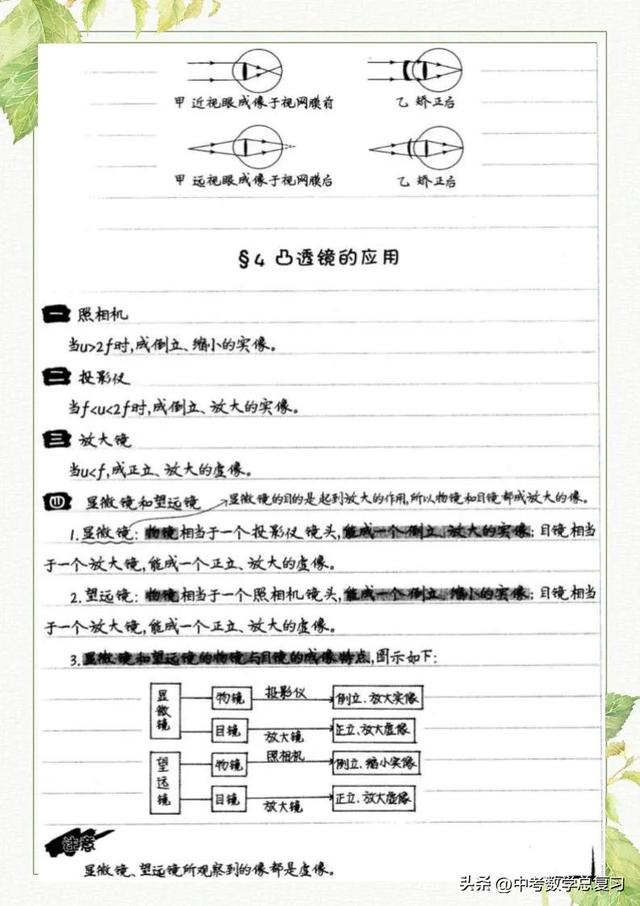 甲 近视眼成像于视网膜前
乙 矫正后
甲 远视眼成像于视网膜后
乙 矫正后
§4 凸透镜的应用
一 照相机
当u>2f时,成倒立、缩小的实像。
二 投影仪
当f<u<2f时,成倒立、放大的实像。
三 放大镜
当u<f,成正立、放大的虚像。
四 显微镜和望远镜
显微镜的目的是起到放大的作用,所以物镜和目镜都成放大的像。
1.显微镜:物镜相当于一个投影仪镜头,能成一个倒立、放大的实像;目镜相当
于一个放大镜,能成一个正立、放大的虚像。
2.望远镜:物镜相当于一个照相机镜头,能成一个倒立、缩小的实像;目镜相当
于一个放大镜,能成一个正立、放大的虚像。
3.显微镜和望远镜的物镜与目镜的成像特点,图示如下:
显微镜
物镜
投影仪
倒立、放大实像
目镜
放大镜
正立、放大虚像
望远镜
物镜
照相机
倒立、缩小实像
目镜
放大镜
正立、放大虚像
注意
显微镜、望远镜所观察到的像都是虚像。
头条 @中考数学总复习